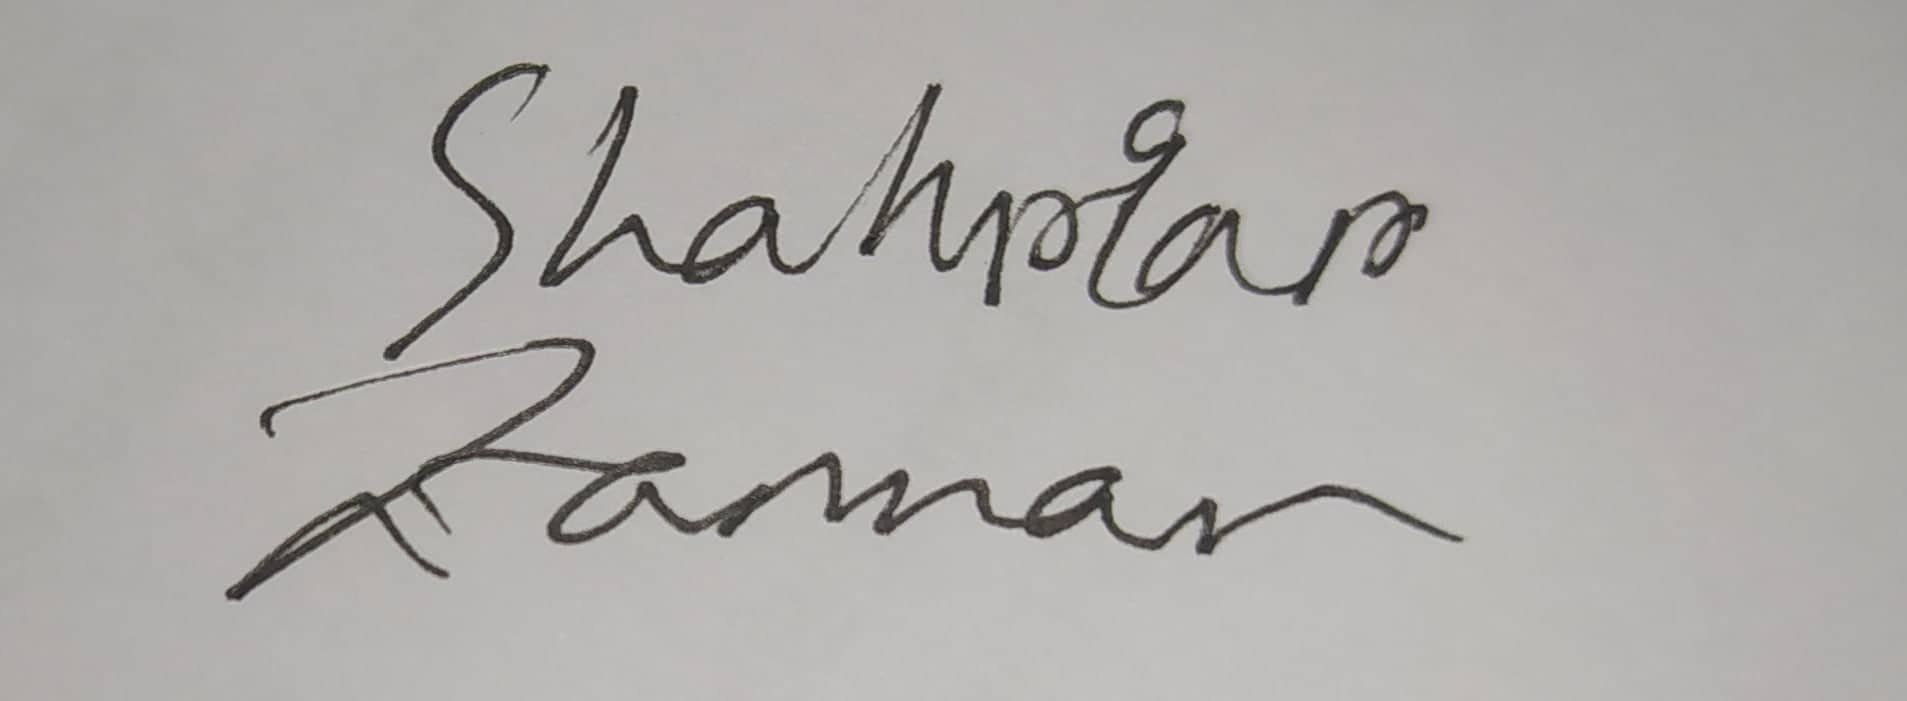 Shahriar
Zaman